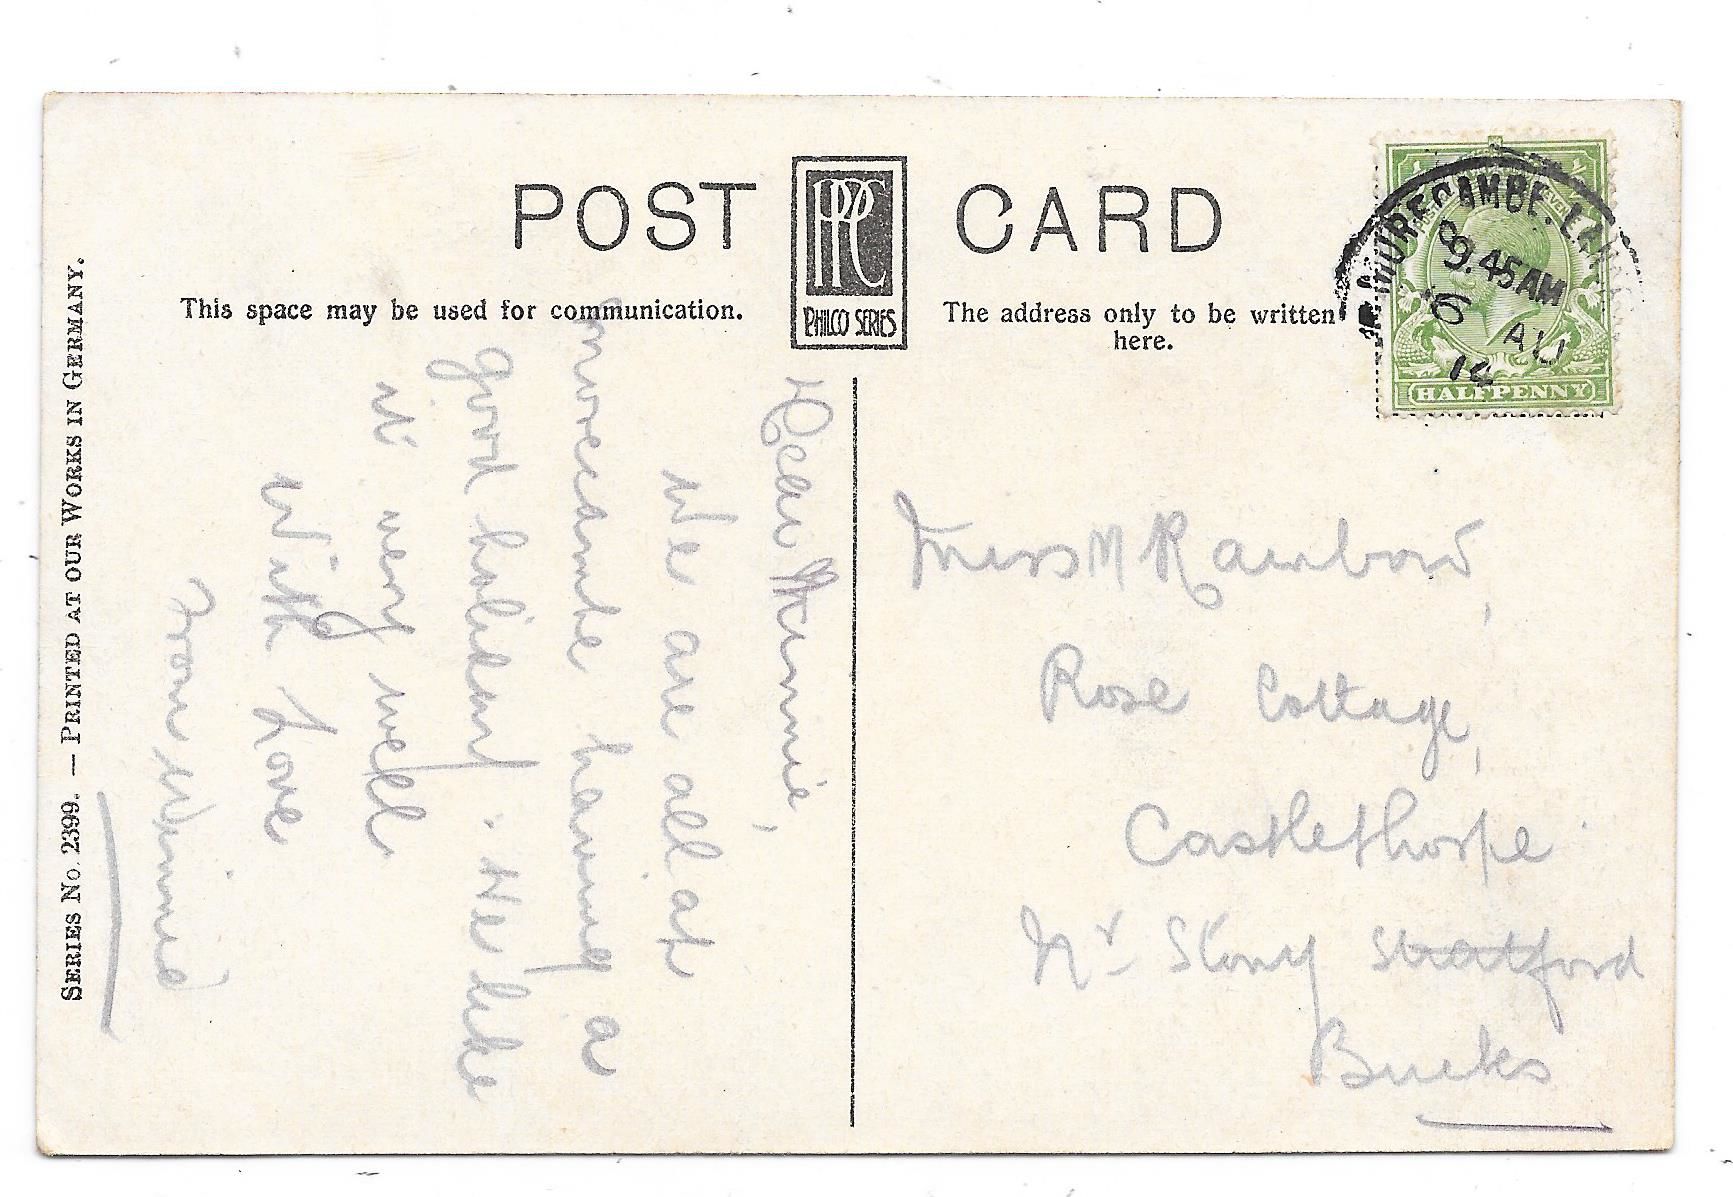 POST CARD
PPC
PHILCO SERIES
This space may be used for communication.
The address only to be written
here.
SERIES No. 2399. — PRINTED AT OUR WORKS IN GERMANY.
MORECAMBE. LANCS
9.45 AM
6 AU
14
HALFPENNY
Dear Minnie,
We are all at
morecambe having a
good holiday. We like
it very well
With Love
From Winnie
Miss M Rainbow,
Rose Cottage,
Castlethorpe
Nr Stony Stratford
Bucks